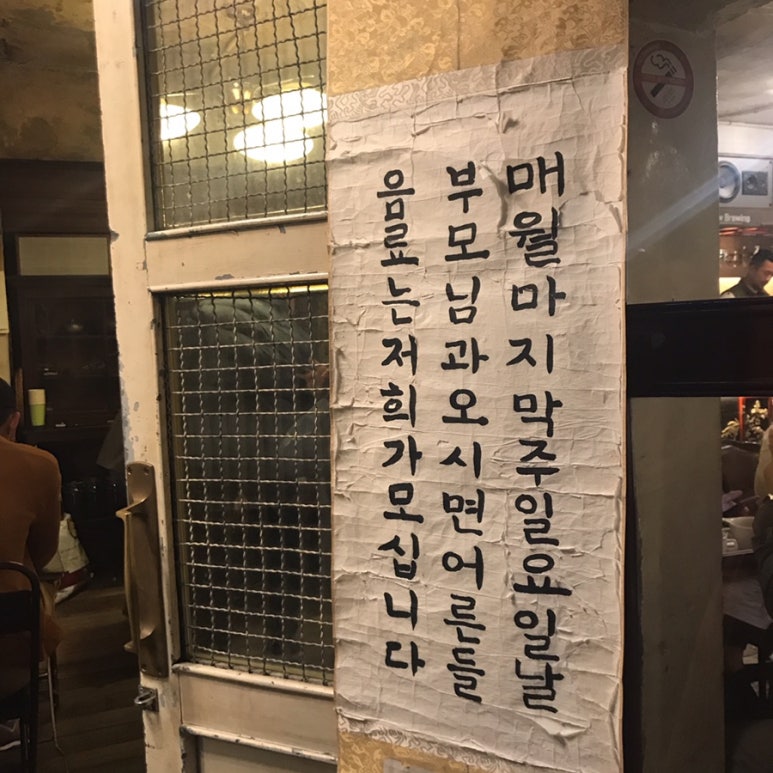 매월마지막주일요일날
부모님과오시면어른들
음료는저희가모십니다
Brewing